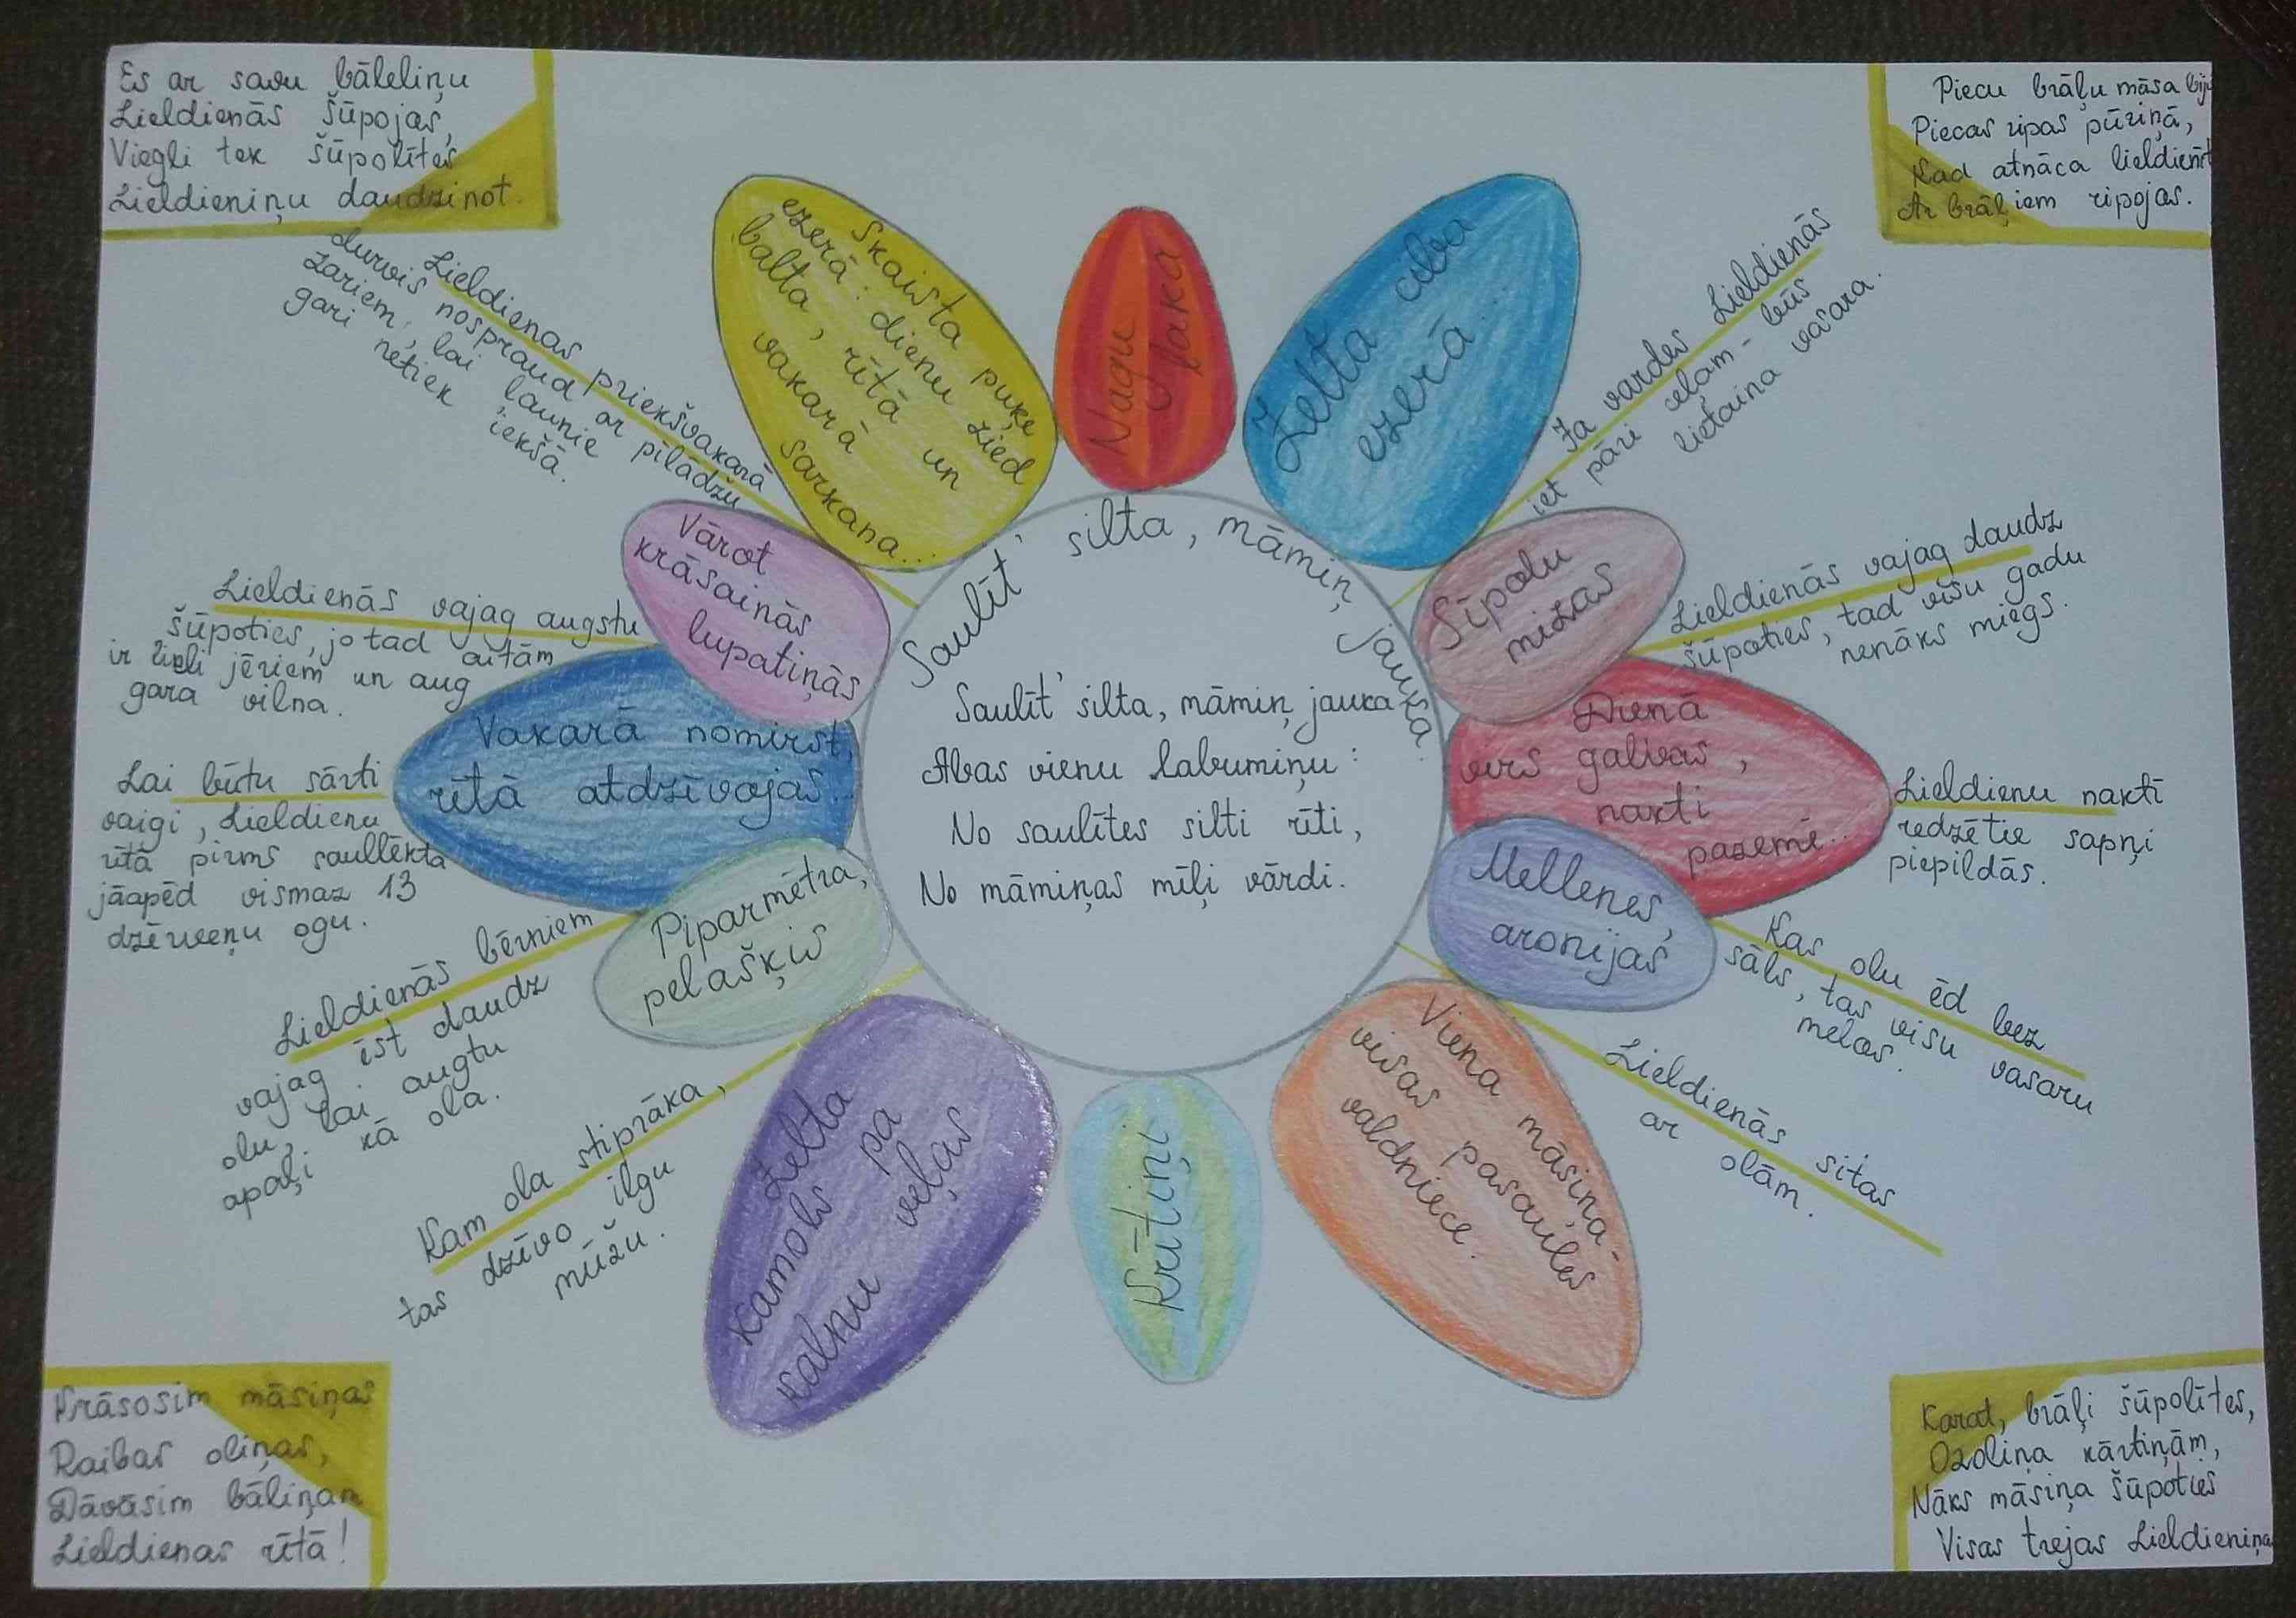 Es ar savu bāleliņu
Lieldienās šūpojas,
Viegli tek šūpolītes
Lieldieniņu daudzinot.
Piecu brāļu māsa bij
Piecas ripas pūriņā,
Kad atnāca lieldien
Ar brāļiem ripojas.
Lieldienas priekšvakarā
durvis nospraud ar pīlādžu
zariem, lai ļaunie
gari netiek iekšā.
Skaista puķe
ezerā: dienu zied
balta, rītā un
vakarā sarkana...
Nagu
laka
Zelta aba
ezerā.
Ja vardes Lieldienās
iet pāri ceļam - būs
lietaina vasara.
Vārot
krāsainās
lupatiņās
Sīpolu
mizas
Lieldienās vajag augstu
šūpoties, jo tad aitām
ir lieli jēriem un aug
gara vilna.
Lieldienās vajag daudz
šūpoties, tad visu gadu
nenāks miegs.
Saulīt' silta, māmiņ, jauka
Saulīt' silta, māmiņ jauka
Abas vienu labumiņu:
No saulītes silti rīti,
No māmiņas mīļi vārdi.
Vakarā nomirst,
rītā atdzīvojas...
Dienā
virs galvas,
naktī
pazemē...
Lai būtu sārti
vaigi, Lieldienu
rītā pirms saullēkta
jāapēd vismaz 13
dzērveņu ogu.
Lieldienu naktī
redzētie sapņi
piepildās.
Piparmētra,
pelašķis
Mellenes,
aronijas
Lieldienās bērniem
vajag ēst daudz
olu, lai augtu
apaļi kā ola.
Kas olu ēd bez
sāls, tas visu vasaru
melos.
Kam ola stiprāka,
tas dzīvo ilgu
mūžu.
Zelta
kamols pa
kalnu veļas
Krītiņi
Viena māsiņa -
visas pasaules
valdniece.
Lieldienās sitas
ar olām.
Krāsosim māsiņas
Raibas oliņas,
Dāvāsim bāliņam
Lieldienas rītā!
Karat, brāļi šūpolītes,
Ozoliņa kārtiņām,
Nāks māsiņa šūpoties
Visas trejas Lieldieniņa